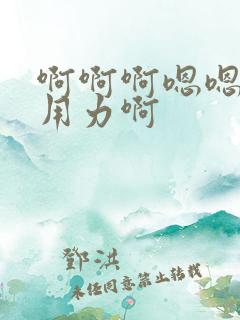 啊啊啊嗯嗯
用力啊
鄧洪
未经同意禁止转载